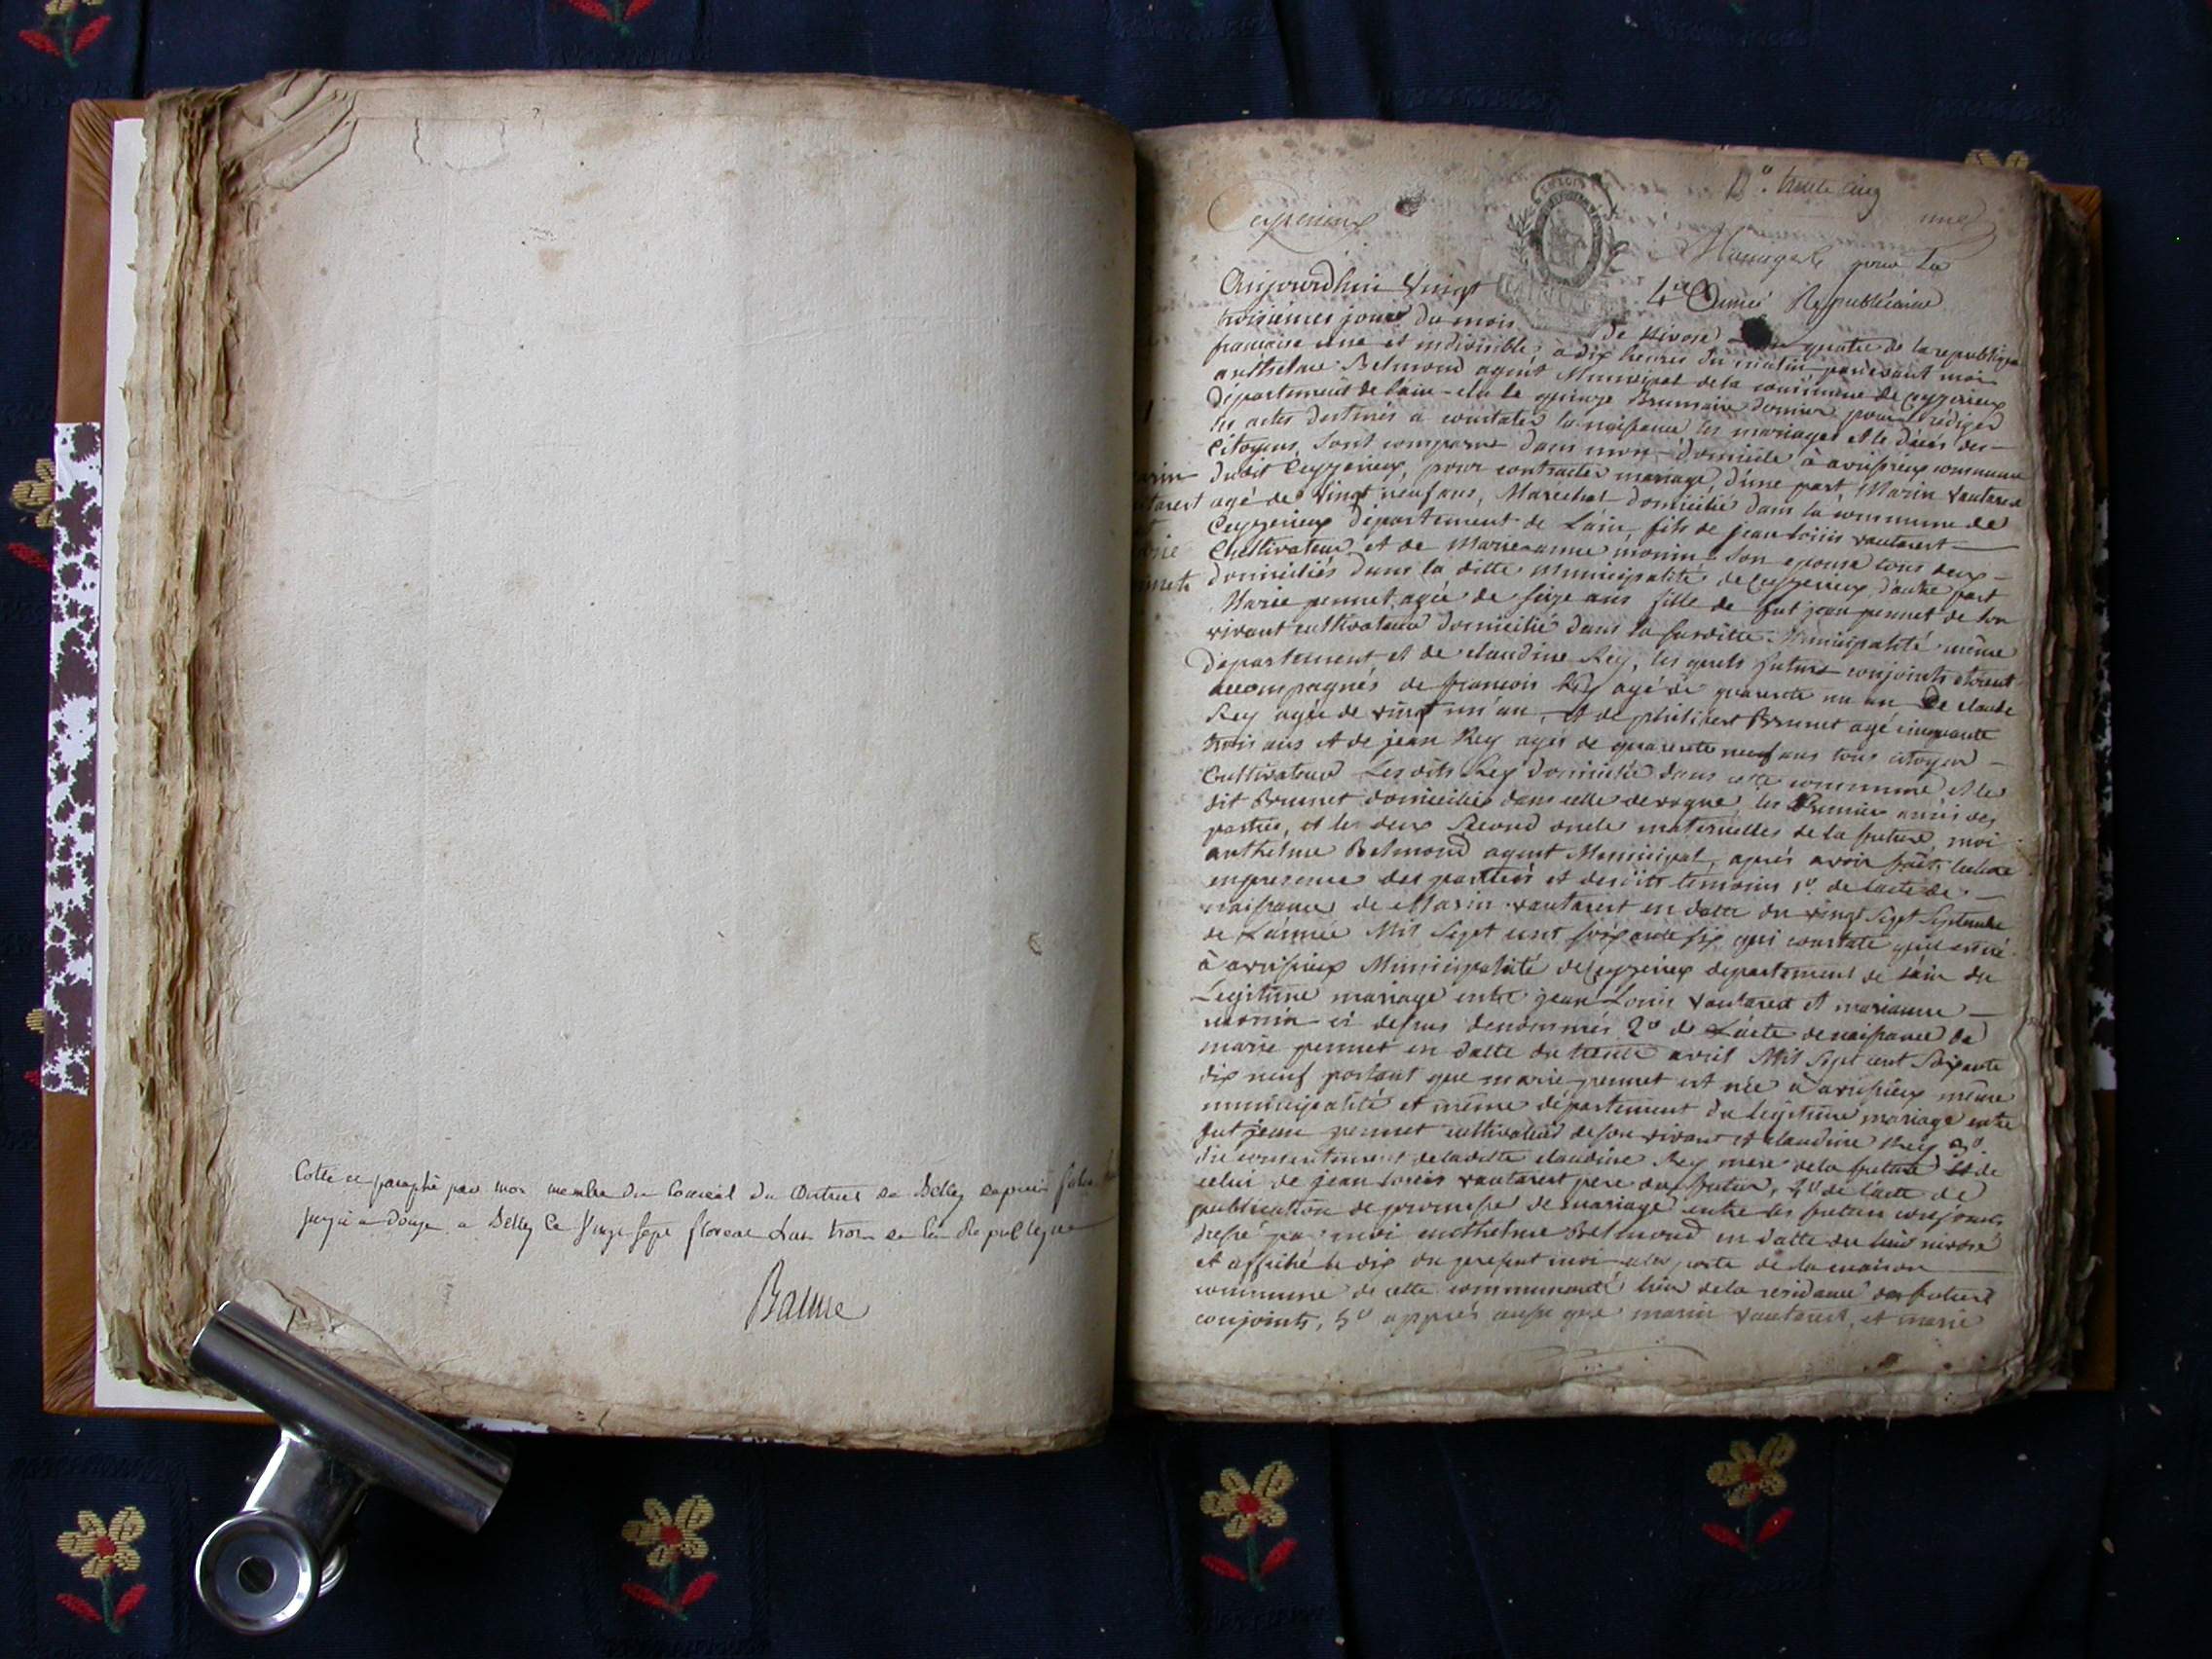 Cotté et paraphé par moi membre du Conseil du District de Belley depuis folio
jusqu'a douze a Belley Ce Vingt sept floreal L'an trois de la Republique
Balme
No. trente cinq
Ceyzerieux
une
Mariages pour La
4e Année Republicaine
Aujourdhui Vingt
troisieme jour du mois de Nivose quatre de la republique
francaise une et indivisible, a dix heures du matin, pardevant moi
anthelme Belmond agent Municipal de la commune de Ceyzerieux
Département de lain elu le quinze Brumaire dernier pour rédiger
les actes destinés a constater la naissance les mariages et le décés des
Citoyens, sont comparus dans mon domicile à avrissieux commune
dudit Ceyzerieux, pour contracter mariage, d'une part, Marin Vautarest
agé de Vingt neuf ans, Maréchal domicilié dans la commune de
Ceyzerieux Département de Lain, fils de jean Louis vautarest
Cultivateur et de Marie anne monin son epouse tous deux
domiciliés dans la ditte Municipalité de Ceyzerieux, d'autre part
Marie pennet, agée de seize ans fille de fut jean pennet de son
vivant cultivateur domicilié dans la susditte Municipalité même
département et de claudine Rey, les quels futurs conjoints etoient
accompagnés de francois Rey agé de quarente un an De claude
Rey agée de vingt un an, et de philibert Brunet agé cinquante
trois ans et de jean Rey agés de quarente neuf ans tous citoyen
Cultivateur Les dits Rey domicilié dans cette commune et le
dit Brunet domicilié dans celle de vogne, les Premier amis des
parties, et les deux second oncles maternelles de la future, moi
anthelme Belmond agent Municipal, aprés avoir fait lecture
en presence des parties et des dits temoins 1o. de lacte de
naissance de Marin vautarest en datte du vingt Sept Septembre
de Lannée Mil Sept cent soixante six qui constate qu'il est né
à avrissieux Municipalité de Ceyzerieux departement de Lain du
Legitime mariage entre jean Louis vautarest et marianne
monin ci dessus denommés 2o de Lacte de naissance de
marie pennet en datte du trente avril Mil Sept cent Soixante
dix neuf portant que marie pennet est née à avrissieux même
municipalité et même département du legitime mariage entre
fut jean pennet cultivateur de son vivant et claudine Rey 3o.
du consentement de laditte claudine Rey mere de la future et de
celui de jean Louis vautarest pere du futur, 4o de lacte de
publication de promesse de mariage entre les futurs conjoints
dressé par moi anthelme Belmond en datte du huit nivose
et affiché le dix du present moi a la porte de la maison
commune de cette communeauté lieu de la residance des futurs
conjoints, 5o apprés aussi que marin vautarest, et marie